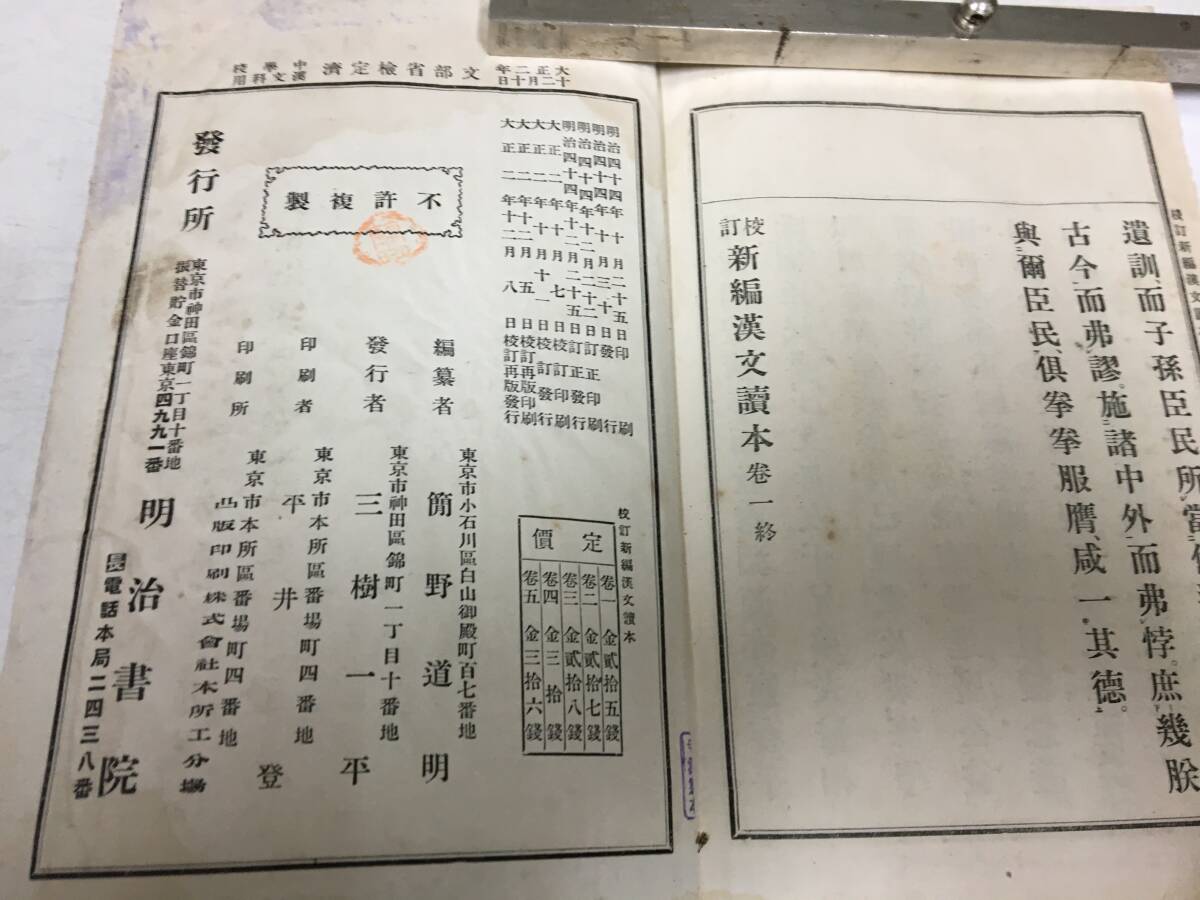 校訂新編漢文讀
遺訓、而子孫臣民所當
古今而弗謬。施諸中外而弗悖。庶幾朕
與爾臣民、俱拳拳服膺、咸一其德。
校訂 新編漢文讀本 卷一 終
大正二年十二月十日 文部省檢定濟 中學校漢文科用
明治四十四年十月二十五日印刷
明治四十四年十月三十日發行
明治四十四年十二月二十二日訂正印刷
明治四十四年十二月二十五日訂正發行
大正二年十月七日校訂印刷
大正二年十月十一日校訂發行
大正二年十二月五日校訂再版印刷
大正二年十二月八日校訂再版發行
不許複製
校訂新編漢文讀本
定價
卷一 金貳拾五錢
卷二 金貳拾七錢
卷三 金貳拾八錢
卷四 金三拾錢
卷五 金三拾六錢
東京市小石川區白山御殿町百七番地
編纂者 簡野道明
東京市神田區錦町一丁目十番地
發行者 三樹一平
東京市本所區番場町四番地
印刷者 平井登
東京市本所區番場町四番地
印刷所 凸版印刷株式會社本所工分場
東京市神田區錦町一丁目十番地
振替貯金口座東京四九九一番
發行所 明治書院
長電話本局二四三八番